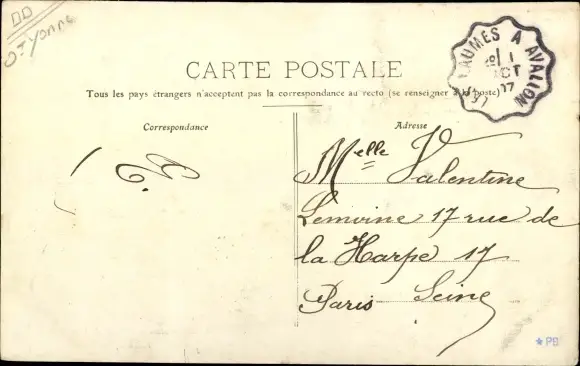 DD
St Yonne
LES LAUMES A AVALLON
1
OCT
07
CARTE POSTALE
Tous les pays étrangers n'acceptent pas la correspondance au recto (se renseigner à la poste)
Correspondance
Adresse
Melle Valentine
Lemoine 17 rue de
la Harpe 17
Paris Seine
PB